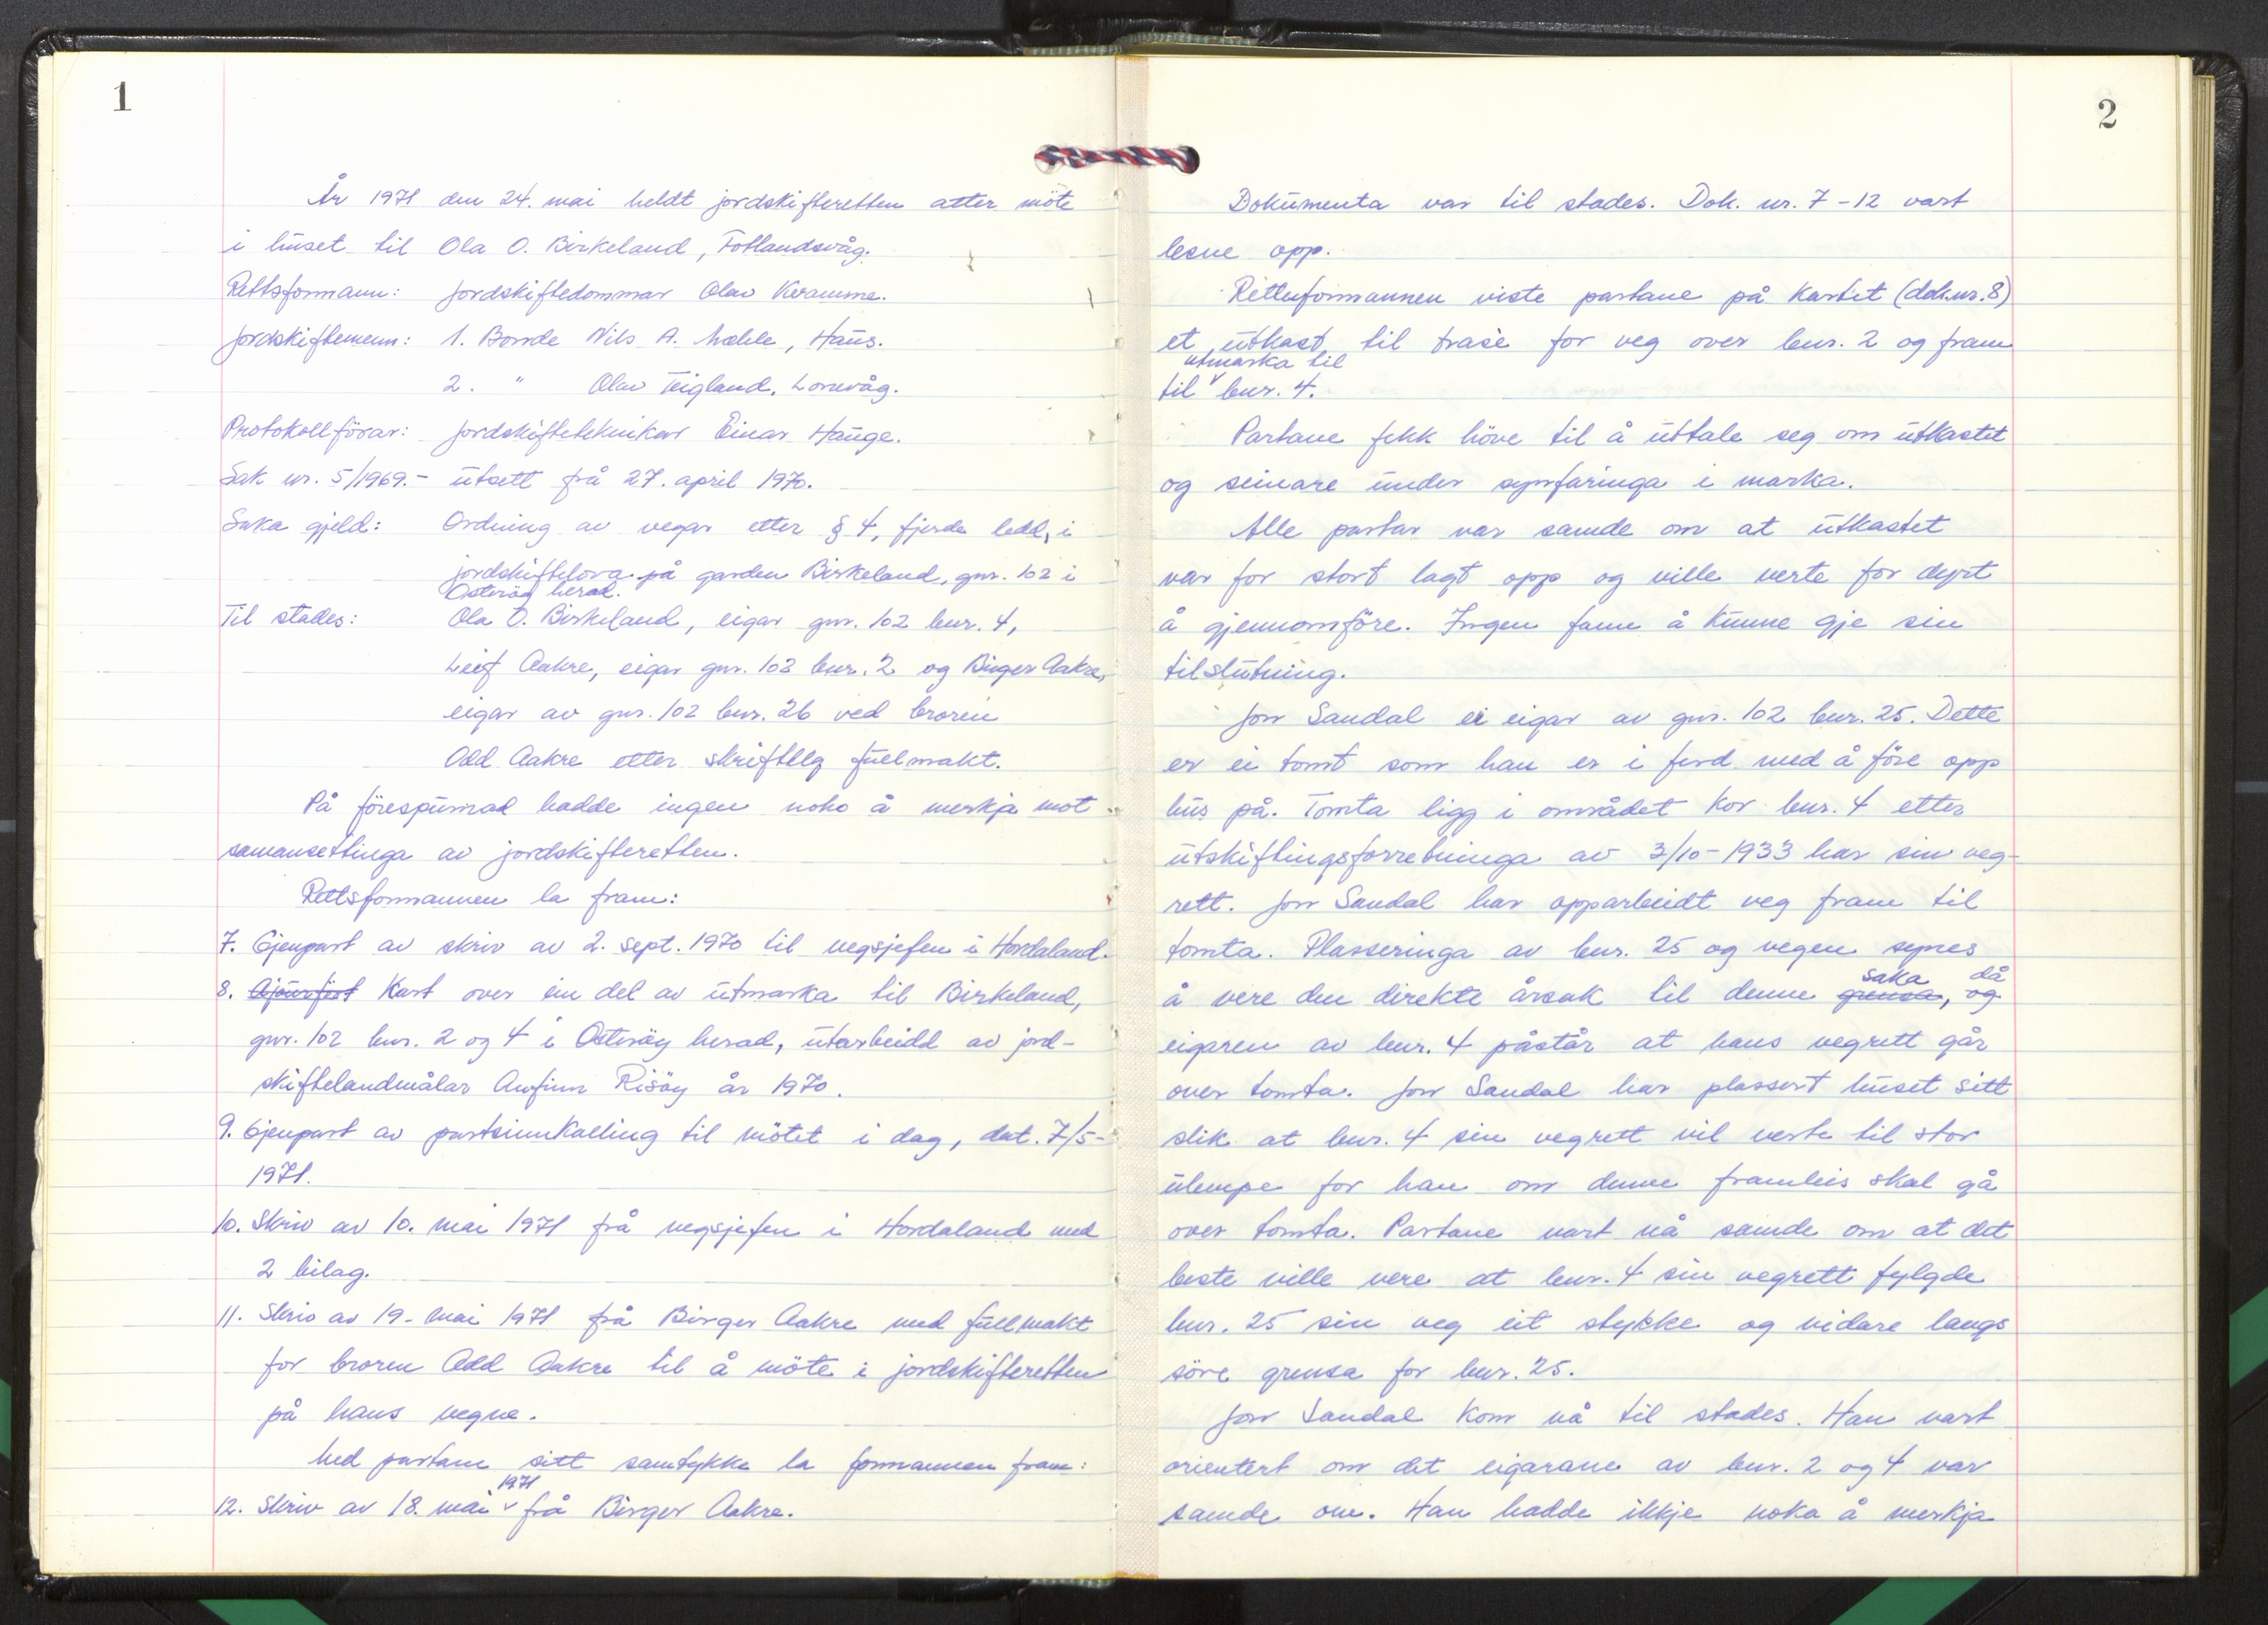 1
År 1971 den 24. mai heldt jordskifteretten atter möte
i huset til Ola O. Birkeland, Fotlandsvåg.
Rettsformann: Jordskiftedommar Olav Kvamme.
Jordskiftemenn: 1. Bonde Nils A. Mæhle, Haus.
2. " Olav Teigland, Lonevåg.
Protokollförar: Jordskifteteknikar Einar Hauge.
Sak nr. 5/1969.- utsett frå 27. april 1970.
Saka gjeld: Ordning av vegar etter § 4, fjerde ledd, i
jordskiftelova på garden Birkeland, gnr. 102 i
Osteröy herad.
Til stades: Ola O. Birkeland, eigar gnr. 102 bnr. 4,
Leif Aakre, eigar gnr. 102 bnr. 2 og Birger Aakre,
eigar av gnr. 102 bnr. 26 ved broren
Odd Aakre etter skriftleg fullmakt.
På förespurnad hadde ingen noko å merkja mot
samansettinga av jordskifteretten.
Rettsformannen la fram:
7. Gjenpart av skriv av 2. sept. 1970 til vegsjefen i Hordaland.
8. Ajourfört Kart over ein del av utmarka til Birkeland,
gnr. 102 bnr. 2 og 4 i Osteröy herad, utarbeidd av jord-
skiftelandmålar Anfinn Risöy år 1970.
9. Gjenpart av partsinnkalling til mötet i dag, dat. 7/5-
1971.
10. Skriv av 10. mai 1971 frå vegsjefen i Hordaland med
2 bilag.
11. Skriv av 19. mai 1971 frå Birger Aakre med fullmakt
for broren Odd Aakre til å möte i jordskifteretten
på hans vegne.
Med partane sitt samtykke la formannen fram:
1971
12. Skriv av 18. mai ˅ frå Birger Aakre.
2
Dokumenta var til stades. Dok. nr. 7-12 vart
lesne opp.
Rettsformannen viste partane på kartet (dok.nr. 8)
et utkast til trasè for veg over bnr. 2 og fram
utmarka til
til ˅ bnr. 4.
Partane fekk höve til å uttale seg om utkastet
og seinare under synfaringa i marka.
Alle partar var samde om at utkastet
var for stort lagt opp og ville verte for dyrt
å gjennomföre. Ingen fann å kunne gje sin
tilslutning.
Jon Sandal er eigar av gnr. 102 bnr. 25. Dette
er ei tomt som han er i ferd med å före opp
hus på. Tomta ligg i området kor bnr. 4 etter
utskiftingsforretninga av 3/10-1933 har sin veg-
rett. Jon Sandal har opparbeidt veg fram til
tomta. Plasseringa av bnr. 25 og vegen synes
saka då
å vere den direkte årsak til denne grensa, og
eigaren av bnr. 4 påstår at hans vegrett går
over tomta. Jon Sandal har plassert huset sitt
slik at bnr. 4 sin vegrett vil verte til stor
ulempe for han om denne framleis skal gå
over tomta. Partane vart nå samde om at det
beste ville vere at bnr. 4 sin vegrett fylgde
bnr. 25 sin veg eit stykke og vidare langs
söre grensa for bnr. 25.
Jon Sandal kom nå til stades. Han vart
orientert om det eigarane av bnr. 2 og 4 var
samde om. Han hadde ikkje noka å merkja